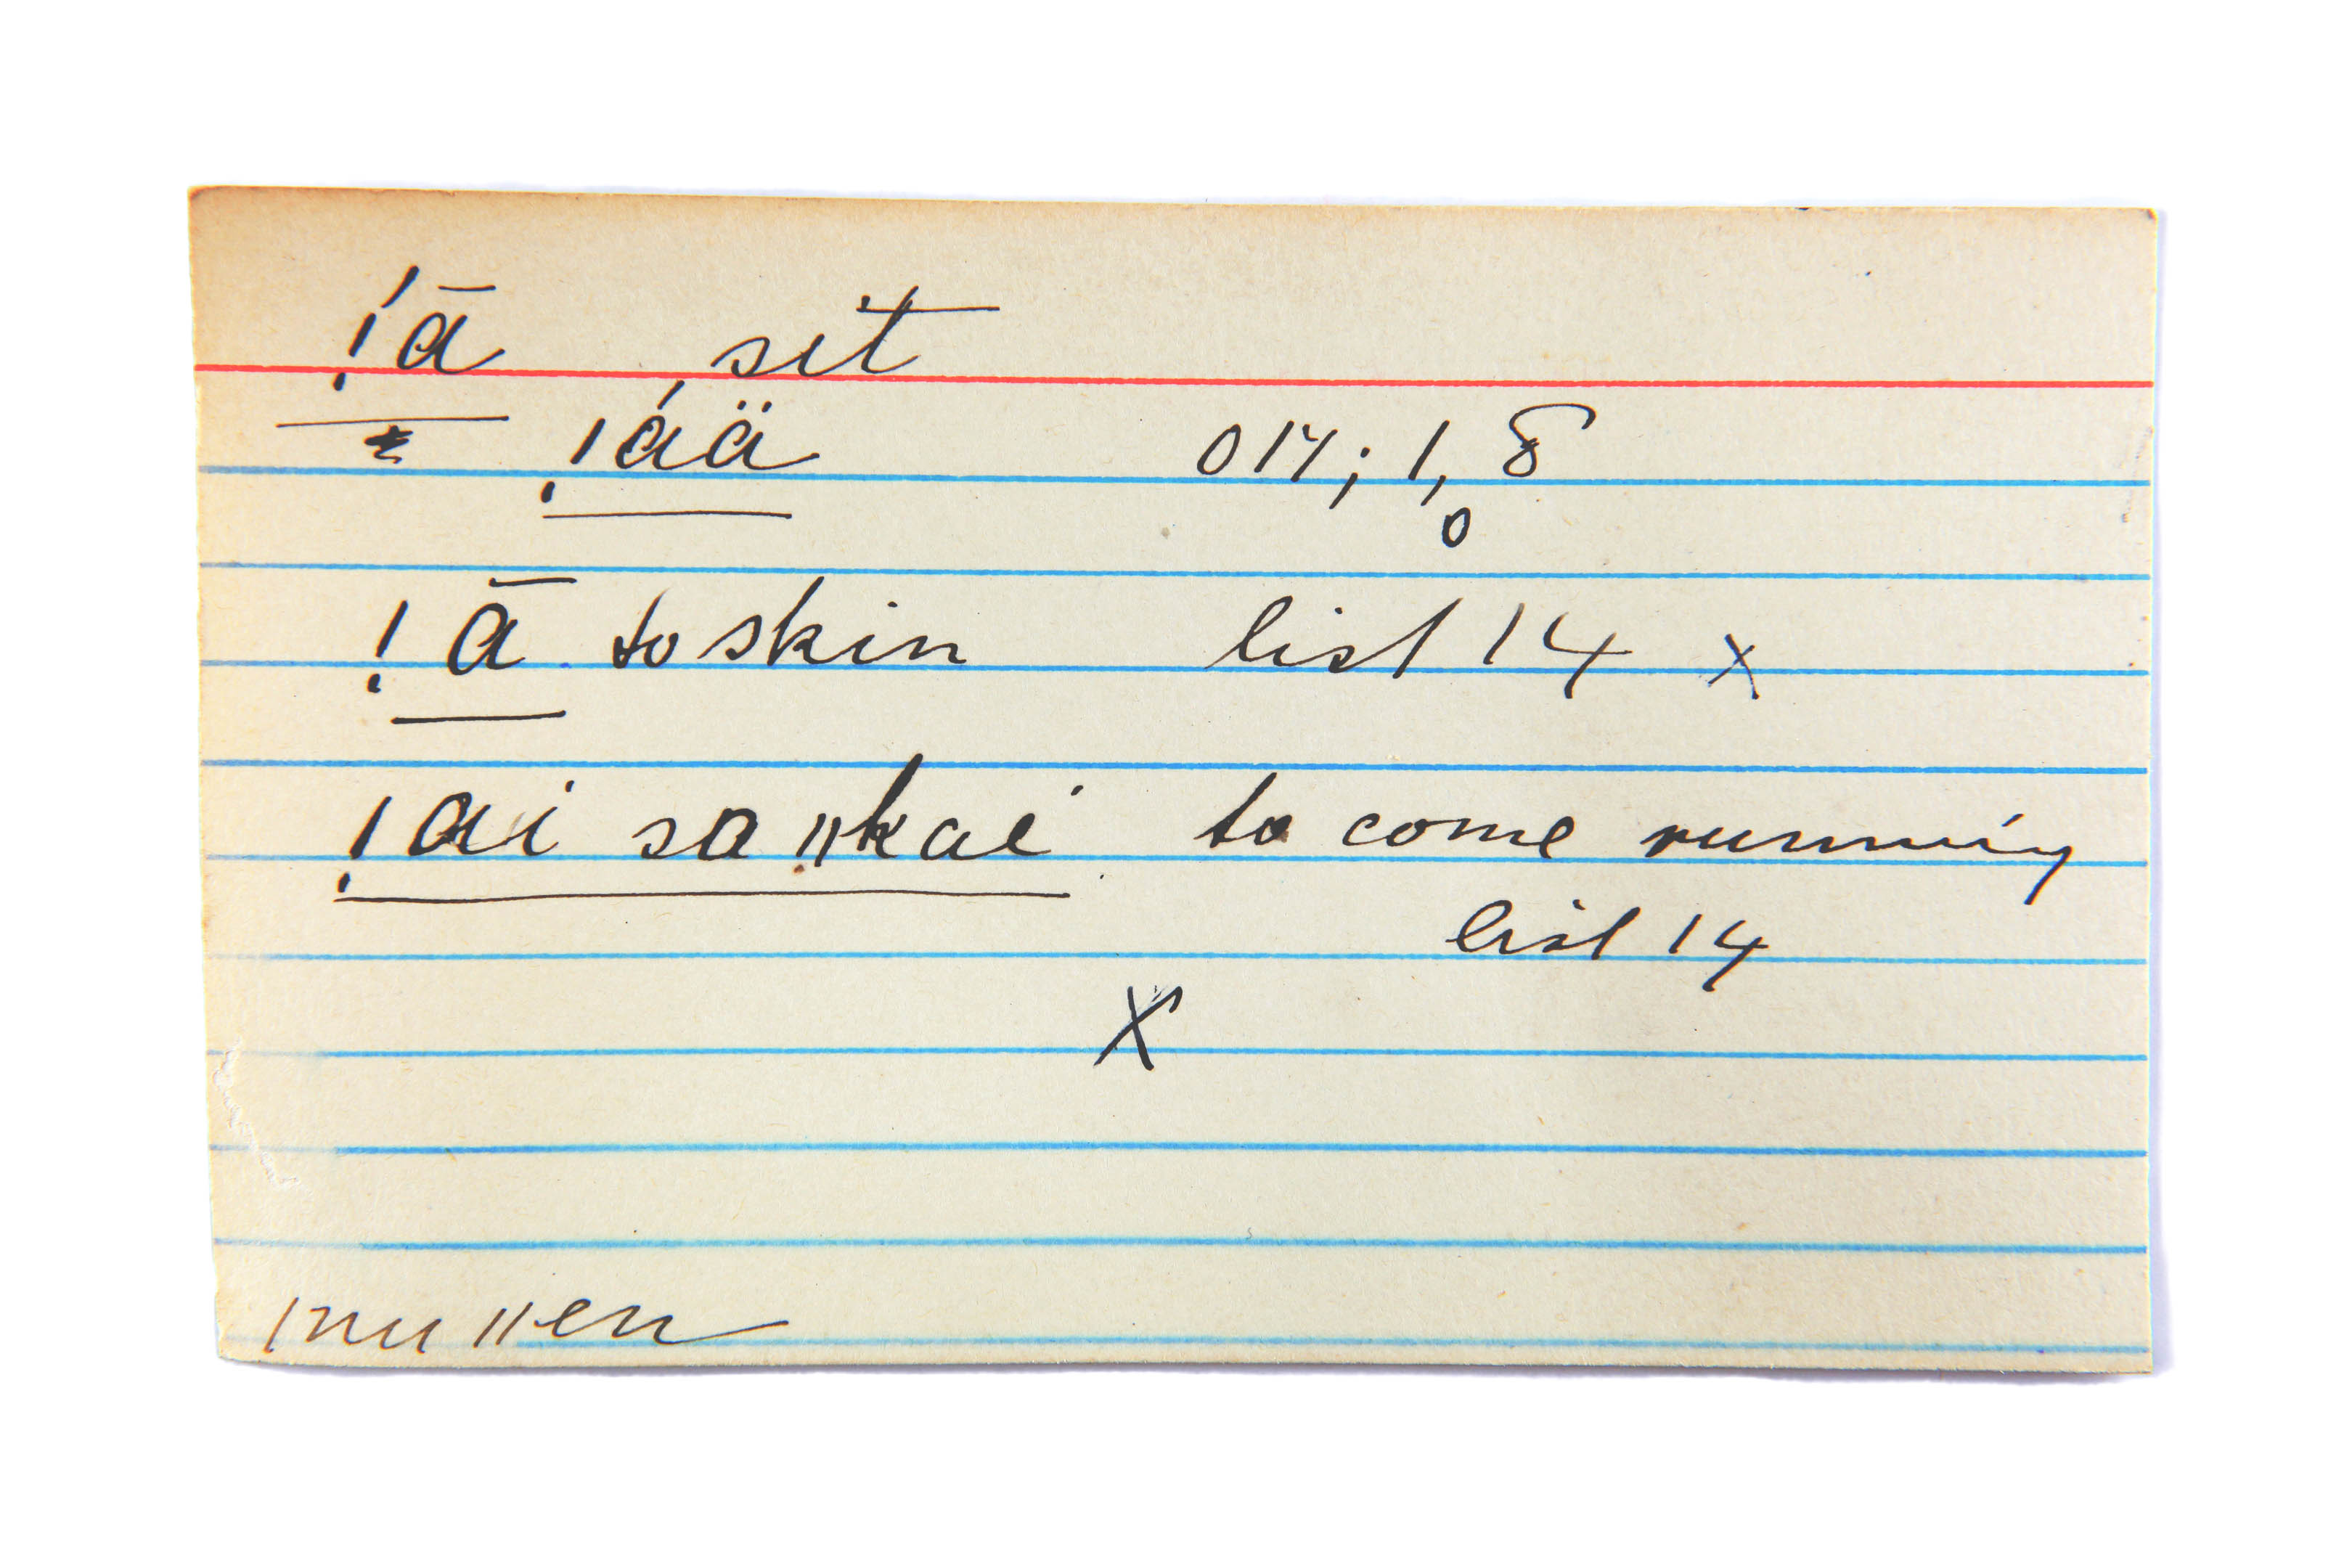 !ā sit
!áä 014; 1, 8
!ā to skin list 14 x
!ai sa ǁkai to come running
list 14
X
ǀnu ǁen